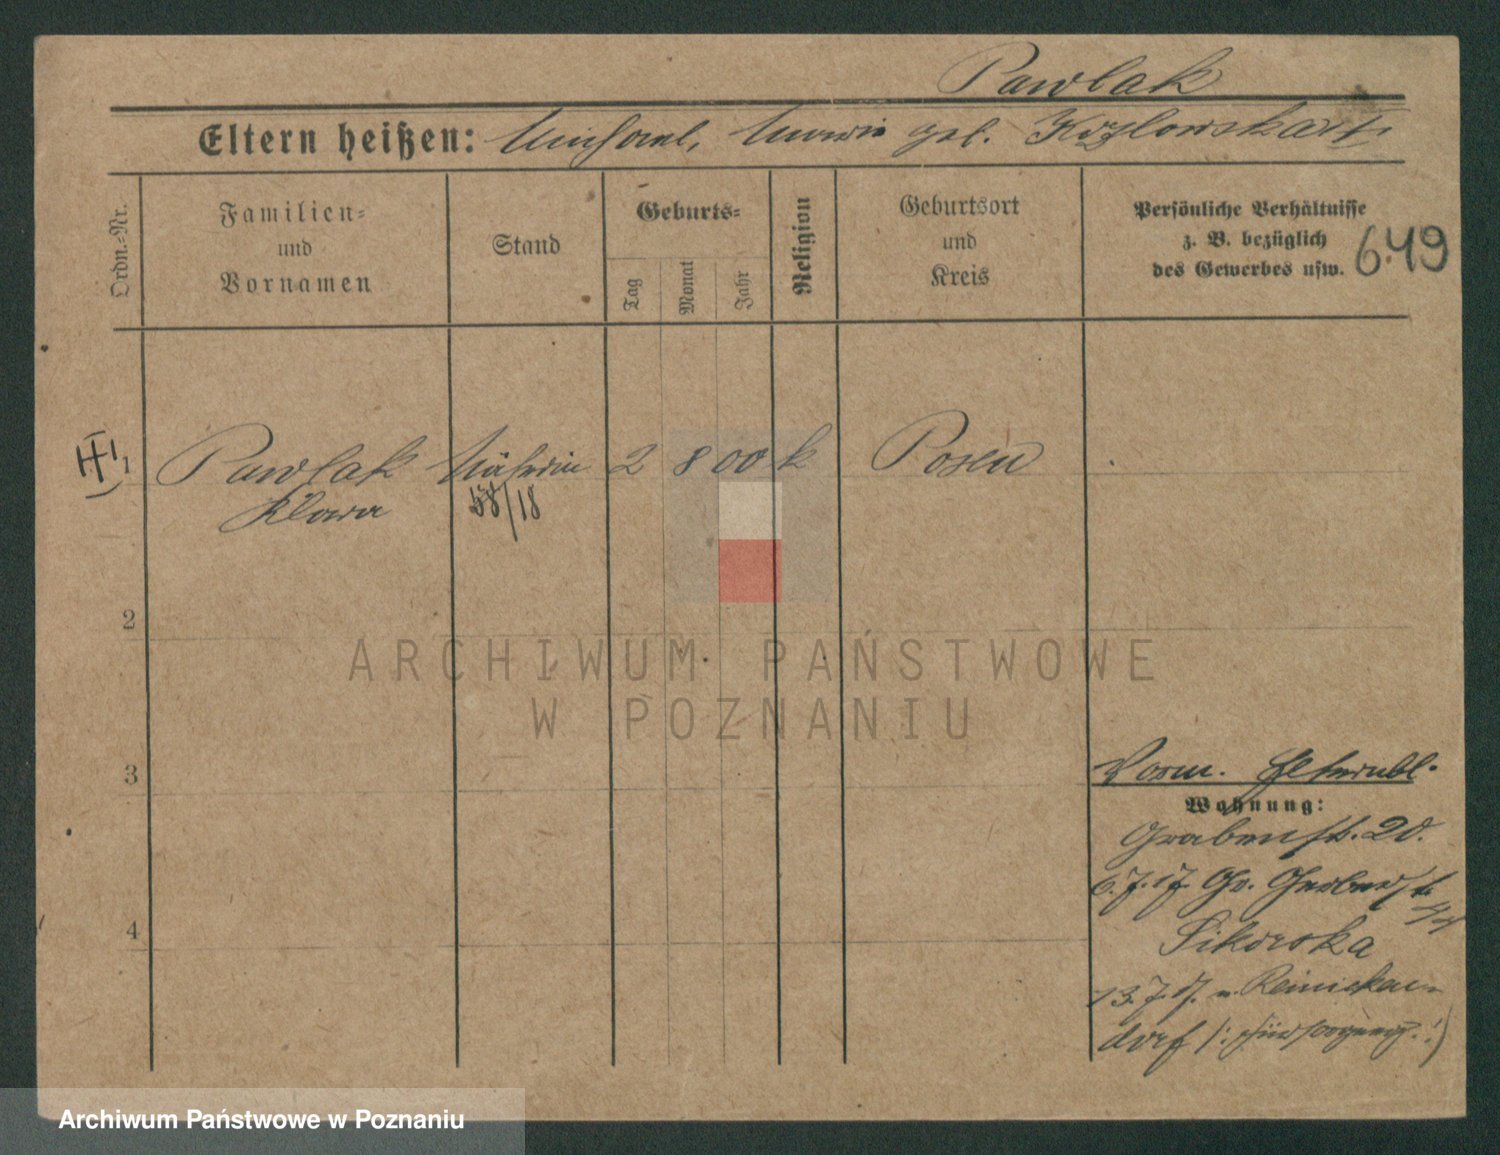 Pawlak
Eltern heißen: Michael, Maria geb. Kozlowska
Ordn.-Nr.
Familien- und Vornamen
Stand
Geburts-
Tag
Monat
Jahr
Religion
Geburtsort und Kreis
Persönliche Verhältnisse
z. B. bezüglich
des Gewerbes usw.
649
1 Pawlak Näherin 2 8 00 k Posen
Klara 58/18
2
3
4
Vorm.
Wohnung:
Grabenstr. 20.
6.7.17 Gr. Gerberstr.
Sikorska
13.7.17. n. Reinicken-
dorf (: Fürsorgung :)
ARCHIWUM PAŃSTWOWE
W POZNANIU
Archiwum Państwowe w Poznaniu